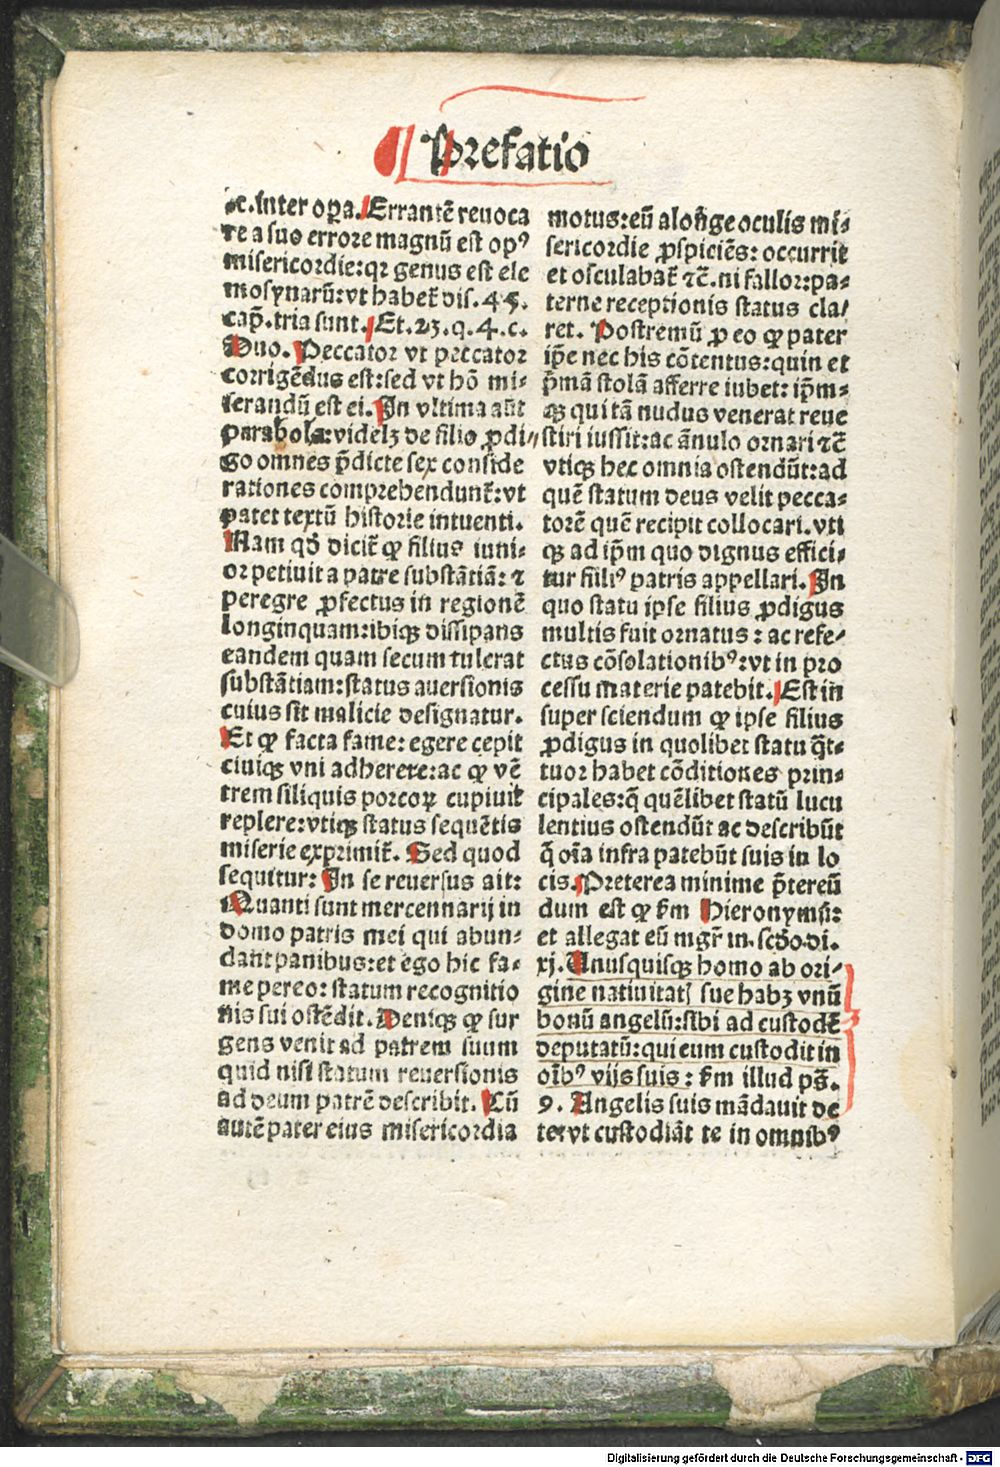 Prefatio
ıc.inter oꝑa. Errantē reuoca
re a suo errore magnū est opꝰ
misericordie:qꝛ genus est ele
mosynarū:vt habet᷑ dis.45.
cap̄.tria sunt. Et.23.q.4.c.
Duo. Peccator vt peccator
corrigēdus est:sed vt hō mi⸗
serandū est ei. In vltima aūt
parabola:videlꝫ de filio ꝓdi⸗
go omnes p̄dicte sex conside
rationes comprehendunt᷑:vt
patet textū historie intuenti.
Nam qđ dicit᷑ ꝙ filius iuni⸗
or petiuit a patre substātiā: ⁊
peregre ꝓfectus in regionē
longinquam:ibiqꝫ dissipans
eandem quam secum tulerat
substātiam:status auersionis
cuius sit malicie designatur.
Et ꝙ facta fame: egere cepit
ciuiqꝫ vni adherere:ac ꝙ vē
trem siliquis porcoꝝ cupiuit
replere:vtiqꝫ status sequētis
miserie exprimit᷑. Sed quod
sequitur: In se reuersus ait:
Quanti sunt mercennarij in
domo patris mei qui abun⸗
dant panibus:et ego hic fa⸗
me pereo: statum recognitio
nis sui ostēdit. Deniqꝫ ꝙ sur
gens venit ad patrem suum
quid nisi statum reuersionis
ad deum patrē describit. Cū
autē pater eius misericordia
motus:eū a lōge oculis mi⸗
sericordie ꝓspiciēs: occurrit
et osculabat᷑ ⁊c̄.ni fallor:pa⸗
terne receptionis status cla⸗
ret. Postremū ꝓ eo ꝙ pater
ip̄e nec his cōtentus:quin et
p̄mā stolā afferre iubet: ip̄m⸗
qꝫ qui tā nudus venerat reue
stiri iussit:ac ānulo ornari ⁊c̄
vtiqꝫ hec omnia ostendūt:ad
quē statum deus velit pecca⸗
torē quē recipit collocari.vti
qꝫ ad ip̄m quo dignus effici⸗
tur filiꝰ patris appellari. In
quo statu ipse filius ꝓdigus
multis fuit ornatus: ac refe⸗
ctus cōsolationibꝰ:vt in pro
cessu materie patebit. Est in
super sciendum ꝙ ipse filius
ꝓdigus in quolibet statu q̄t⸗
tuor habet cōditiones prin⸗
cipales:q̄ quēlibet statū lucu
lentius ostendūt ac describūt
q̄ oīa infra patebūt suis in lo
cis. Preterea minime p̄tereū
dum est ꝙ ẜm Hieronymū:
et allegat eū mgr̄ in.scđo.di.
xj. Unusquisqꝫ homo ab ori⸗
gine natiuitatꝭ sue habꝫ vnū
bonū angelū:sibi ad custodē
deputatū:qui eum custodit in
oībꝰ vijs suis: ẜm illud ps̄.
9. Angelis suis mādauit de
te:vt custodiāt te in omnibꝰ
Digitalisierung gefördert durch die Deutsche Forschungsgemeinschaft - DFG